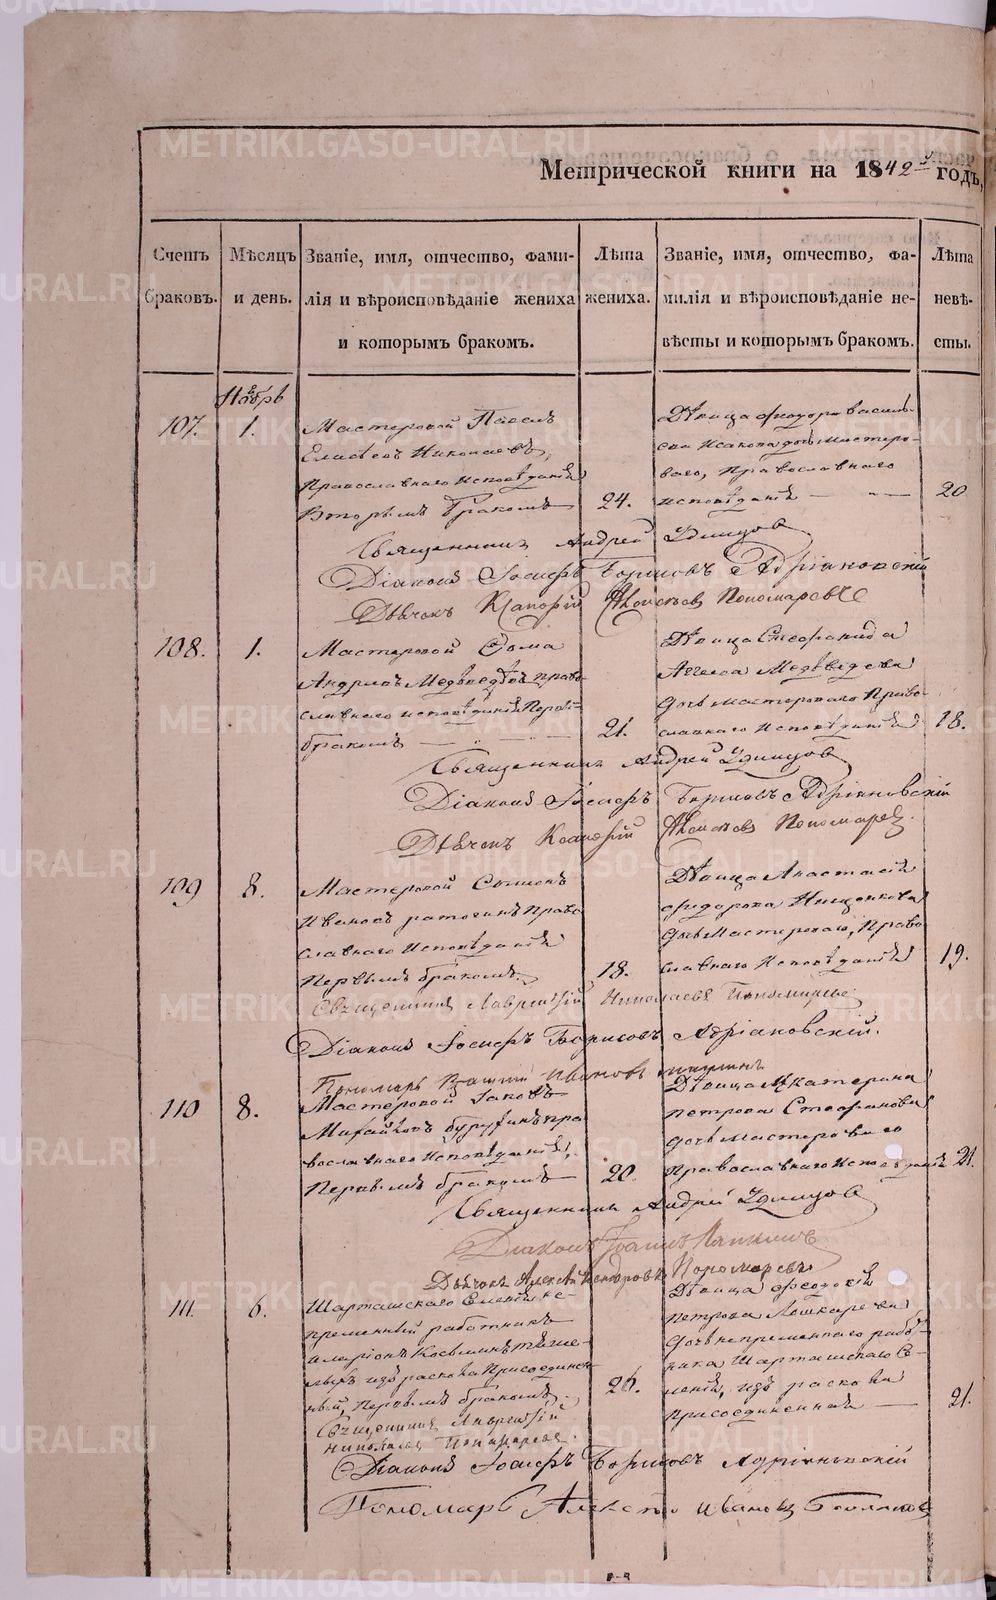 Метрической книги на 1842 годъ,
Счетъ браковъ.
Мѣсяцъ и день.
Званіе, имя, отчество, фами-
лія и вѣроисповѣданіе жениха
и которымъ бракомъ.
Лѣта жениха.
Званіе, имя, отчество, фа-
милія и вѣроисповѣданіе не-
вѣсты и которымъ бракомъ.
Лѣта невѣ-
сты.
Ноябрь
107.
1.
Мастеровой Павелъ
Елисѣевъ Николаевъ,
Православнаго исповѣданія
Вторымъ бракомъ
24.
Дѣвица Феодора Василь-
ева Исакова дочь мастеро-
ваго, Православнаго
исповѣданія
20
Священникъ Андрей Удинцов
Діаконъ Іосифъ Борисовъ Адріановскій
Дьячекъ Алексѣевъ Пономаревъ
108.
1.
Мастеровой Фома
Андреевъ Медведевъ право-
славнаго исповѣданія Первым
бракомъ
21.
Дѣвица Стефанида
Медвѣдева
дочь мастероваго Право-
славнаго Исповѣданія
18.
Священникъ Андрей Удинцов
Діаконъ Іосифъ Борисовъ Адріановскій
Дьячекъ Алексѣевъ Пономарев.
109
8.
Мастеровой Симеонъ
Ивановъ Право-
славнаго Исповѣданія
Первымъ бракомъ.
18.
Дѣвица Анастасія
Федорова
дочь Мастероваго, Право-
славнаго Исповѣданія
19.
Священникъ Лаврентій Николаевъ Пономаревъ
Діаконъ Іосифъ Борисовъ Адріановскій.
Пономарь Ивановъ
110
8.
Мастеровой Іаковъ
Михайловъ пра-
вославнаго Исповѣданія,
Первымъ бракомъ
20.
Дѣвица Екатерина
Петрова Стефанова
дочь мастероваго
Православнаго Исповѣданія
21.
Священникъ Андрей Удинцов
Діаконъ Іоаннъ
Дьячекъ Алексѣй Пономаревъ
111.
6.
Шарташскаго Селенія не-
премѣнный работникъ
Иларіонъ Козьминъ
изъ раскола Присоединен-
ный, Первымъ бракомъ.
26.
Дѣвица Феодосія
Петрова Лошкарева
дочь непремѣннаго работ-
ника Шарташскаго Се-
ленія, изъ раскола
присоединенная
21.
Священникъ Лаврентій
Николаевъ Пономаревъ.
Діаконъ Іосифъ Борисовъ Адріановскій
Пономарь Алексѣй Ивановъ
METRIKI.GASO-URAL.RU